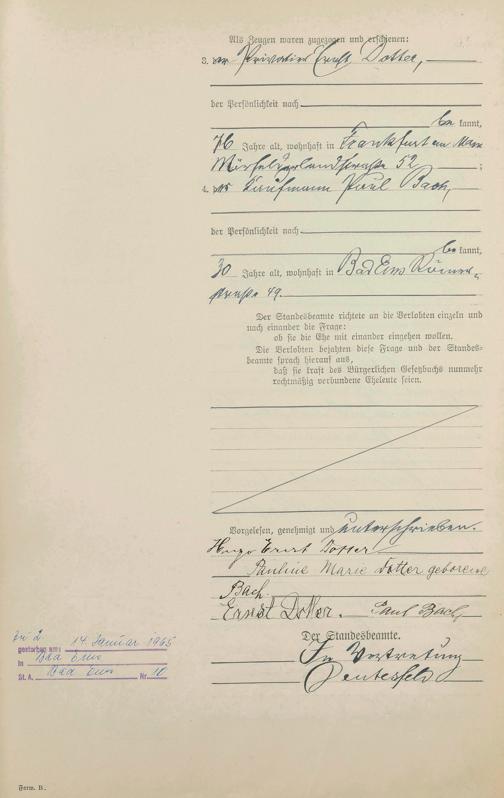 Als Zeugen waren zugezogen und erschienen:
3. der Privatier Ernst Dotter,
der Persönlichkeit nach
be kannt,
76 Jahre alt, wohnhaft in Frankfurt am Main
52 ;
4. der Kaufmann Paul Bach,
der Persönlichkeit nach
be kannt,
30 Jahre alt, wohnhaft in Bad Ems Römer-
straße 49.
Der Standesbeamte richtete an die Verlobten einzeln und
nach einander die Frage:
ob sie die Ehe mit einander eingehen wollen.
Die Verlobten bejahten diese Frage und der Standes-
beamte sprach hierauf aus,
daß sie kraft des Bürgerlichen Gesetzbuchs nunmehr
rechtmäßig verbundene Eheleute seien.
Vorgelesen, genehmigt und unterschrieben.
Hugo Ernst Dotter
Pauline Marie Dotter geborene
Bach.
Ernst Dotter. Paul Bach,
Der Standesbeamte.
In Vertretung
zu 2.
gestorben am: 14. Januar 1965
in Bad Ems
St. A. Bad Ems Nr. 10
Form. B.